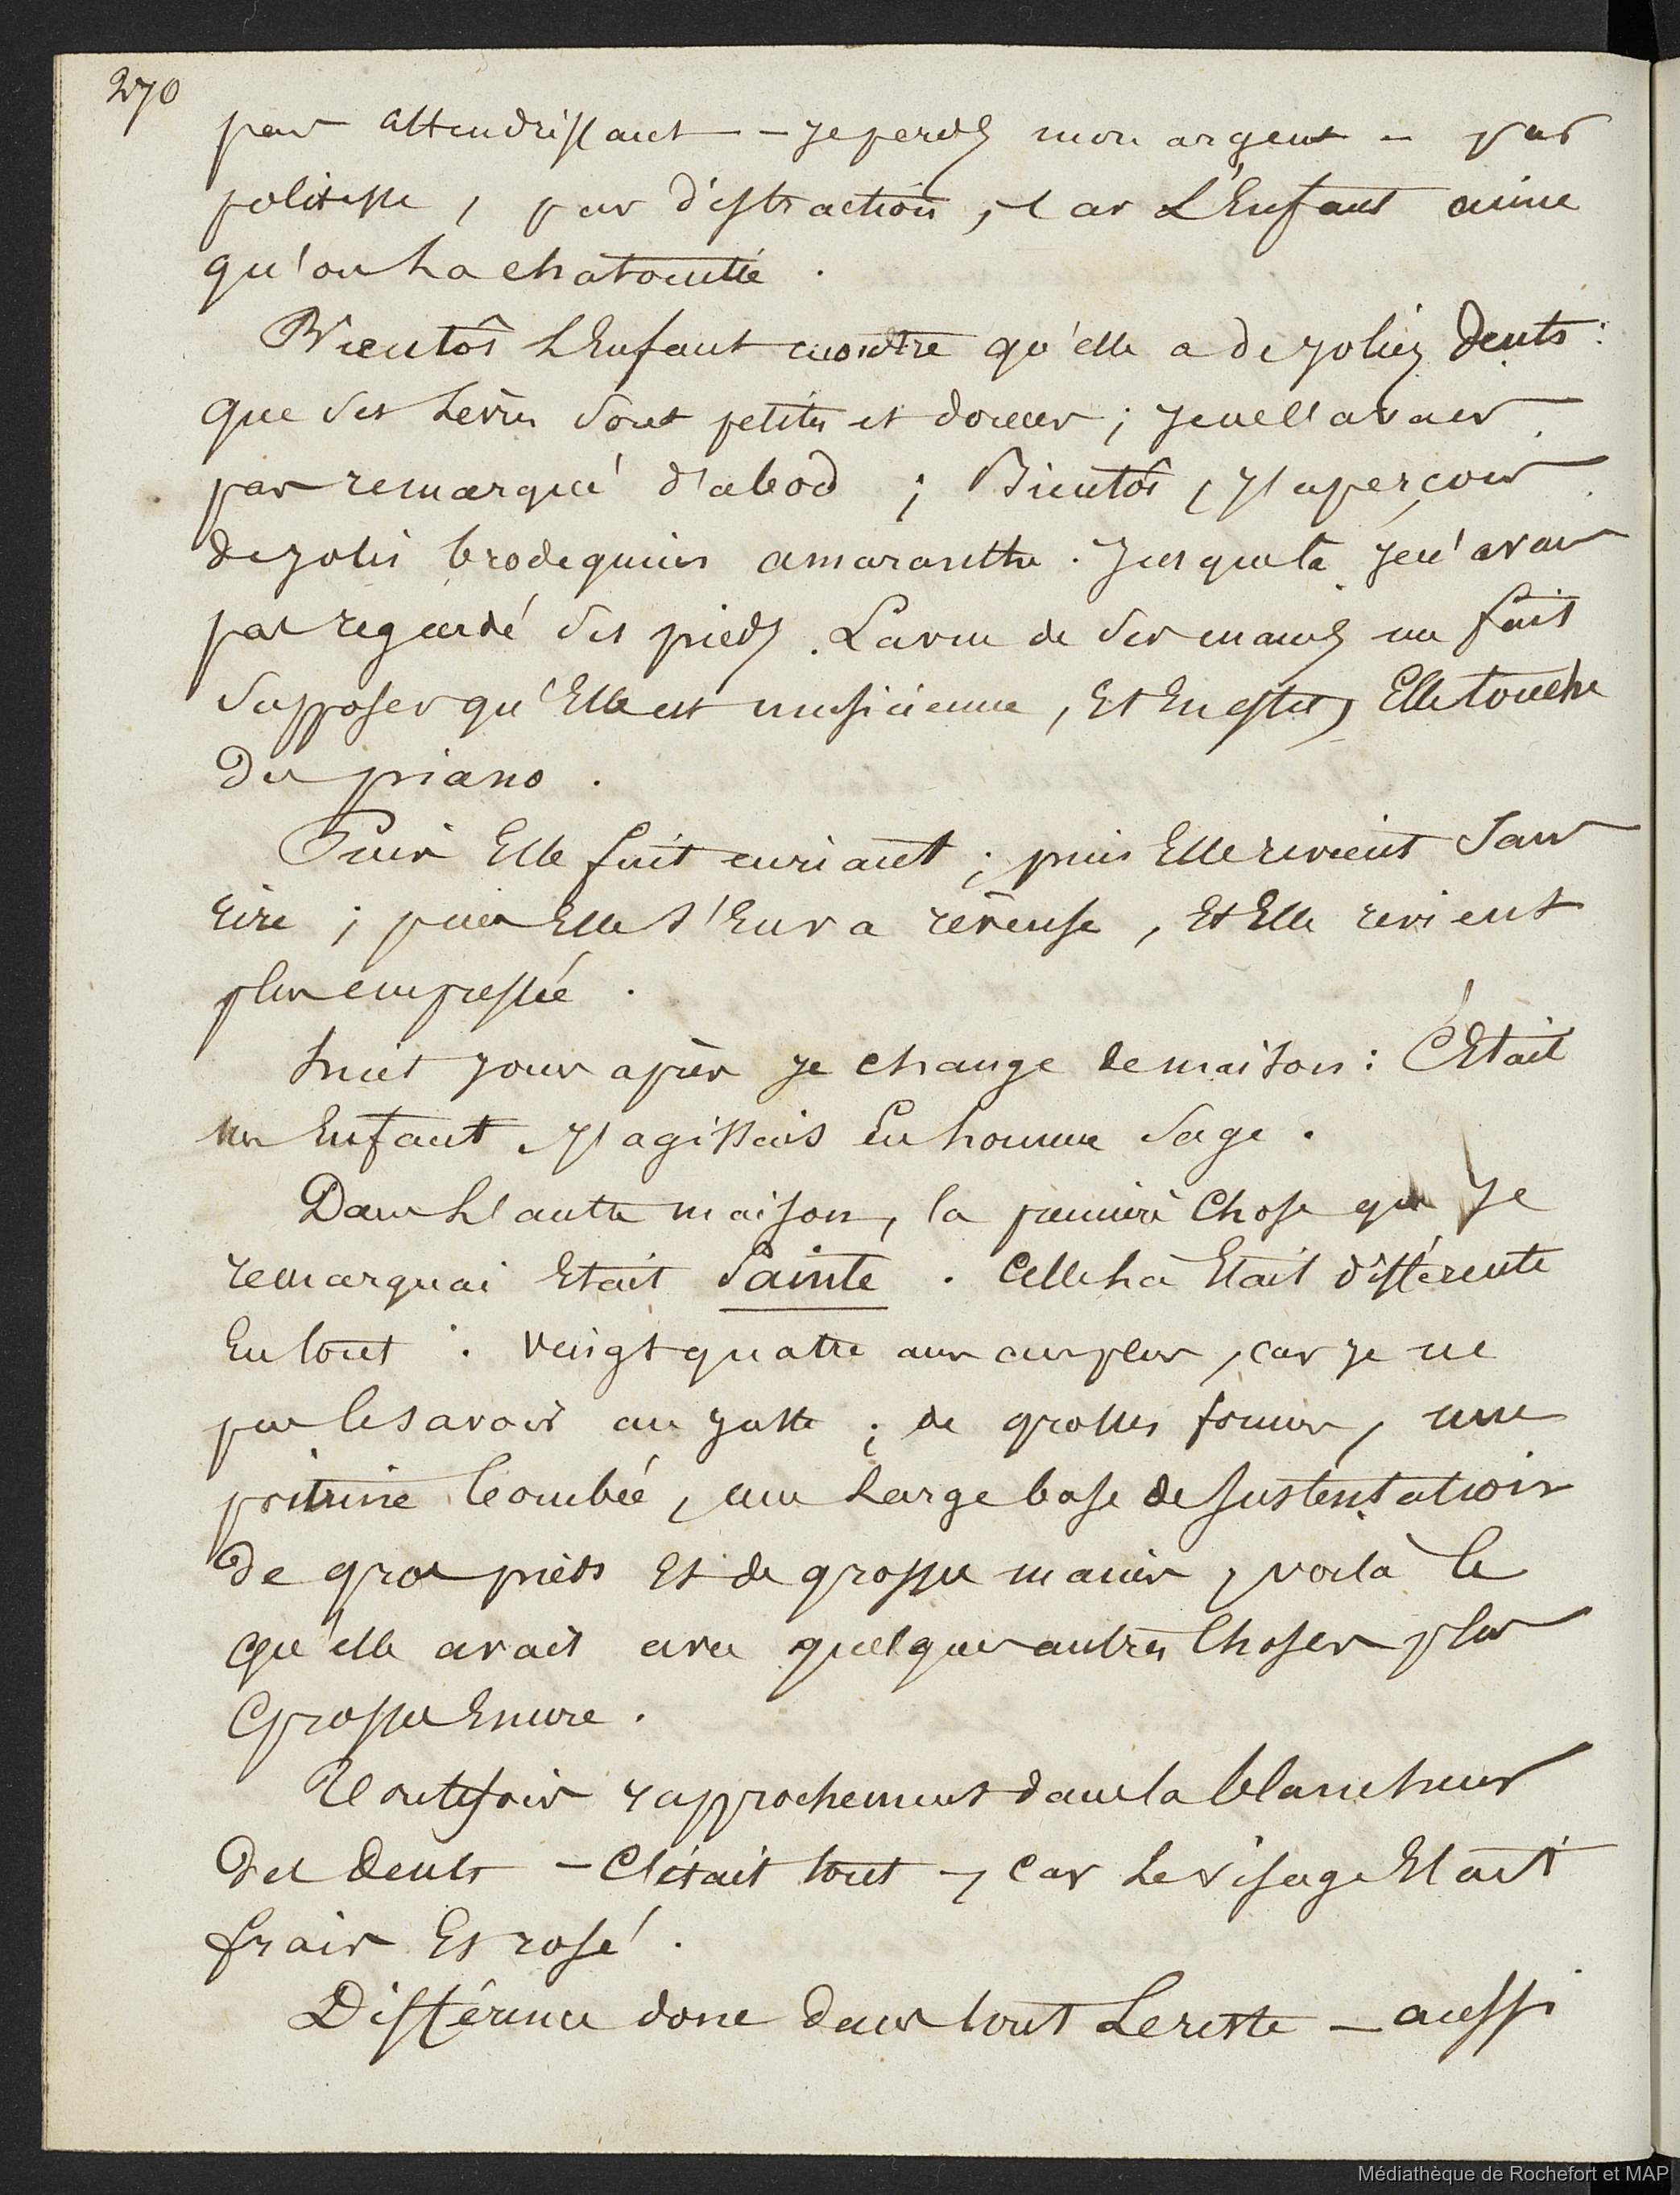 270
pas attendrissant — je perds mon argent — par
politesse, par distraction, car l'Enfant aime
qu'on la chatouille.
Bientôt l'Enfant montre qu'elle a de jolies dents:
que ses lèvres sont petites et douces; je ne l'avais
pas remarqué d'abod; Bientôt, j'aperçois
de jolis brodequins amaranthe. Jusque là je n'avais
pas regardé ses pieds. La vue de ses mains me fait
supposer qu'Elle est musicienne, Et En effet, Elle touche
du piano.
Puis Elle fuit en riant; puis Elle revient sans
rire; puis Elle s'En va rêveuse, Et Elle revient
plus empressée.
huit jours après je change de maison: C'Etait
un Enfant, j'agissais En homme sage.
Dans l'autre maison, la première Chose que Je
remarquai Etait Sainte. Celle là Etait différente
En tout: Veingt quatre ans au plus, car je ne
pus le savoir au juste; de grosses formes, une
poitrine bombée, une large base de sustentation
de gros pieds Et de grosses mains, voilà ce
qu'elle avait avec quelques autres Choses plus
Grosses Encore.
Toutefois rapprochement dans la blancheur
des dents — C'était tout —, Car le visage Etait
frais Et rosé.
Différence donc dans tout le reste — aussi
Médiathèque de Rochefort et MAP